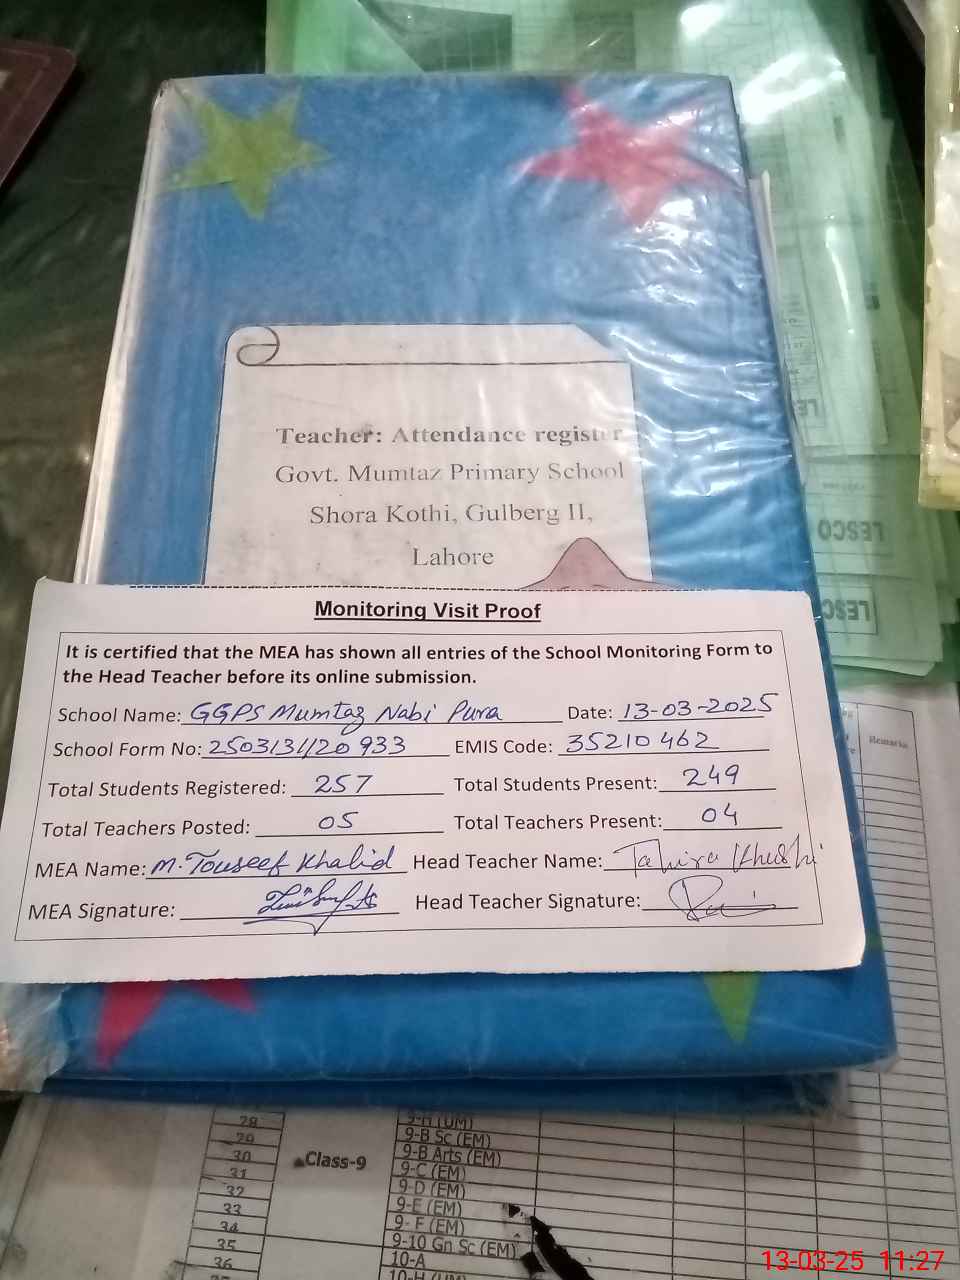 Teacher: Attendance register
Govt. Mumtaz Primary School
Shora Kothi, Gulberg II,
Lahore
Monitoring Visit Proof
It is certified that the MEA has shown all entries of the School Monitoring Form to
the Head Teacher before its online submission.
School Name: GGPS Mumtaz Nabi Pura Date: 13-03-2025
School Form No: EMIS Code: 35210462
Total Students Registered: 257 Total Students Present: 249
Total Teachers Posted: 05 Total Teachers Present: 04
MEA Name: M. Touseef Khalid Head Teacher Name: Tahira
MEA Signature: Head Teacher Signature:
LESCO
LESCO
Remarks
28 9-H (UM)
29 9-B Sc (EM)
30 9-B Arts (EM)
31 Class-9 9-C (EM)
32 9-D (EM)
33 9-E (EM)
34 9-F (EM)
35 9-10 Gn Sc (EM)
36 10-A
10-H (UM)
13-03-25 11:27